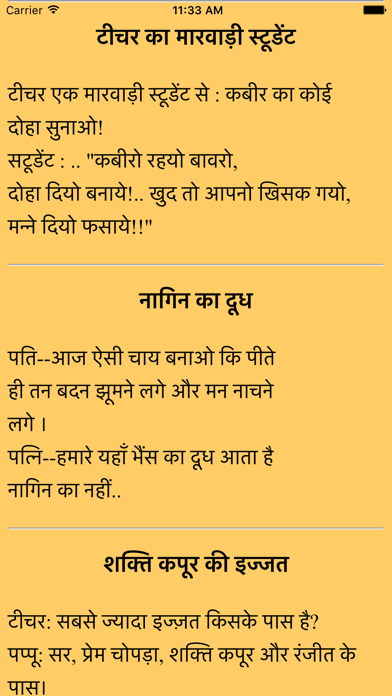 Carrier 11:33 AM
टीचर का मारवाड़ी स्टूडेंट
टीचर एक मारवाड़ी स्टूडेंट से : कबीर का कोई
दोहा सुनाओ!
सटूडेंट : .. "कबीरो रहयो बावरो,
दोहा दियो बनाये!.. खुद तो आपनो खिसक गयो,
मन्ने दियो फसाये!!"
नागिन का दूध
पति--आज ऐसी चाय बनाओ कि पीते
ही तन बदन झूमने लगे और मन नाचने
लगे ।
पत्नि--हमारे यहाँ भैंस का दूध आता है
नागिन का नहीं..
शक्ति कपूर की इज्जत
टीचर: सबसे ज्यादा इज्ज़त किसके पास है?
पप्पू: सर, प्रेम चोपड़ा, शक्ति कपूर और रंजीत के
पास।